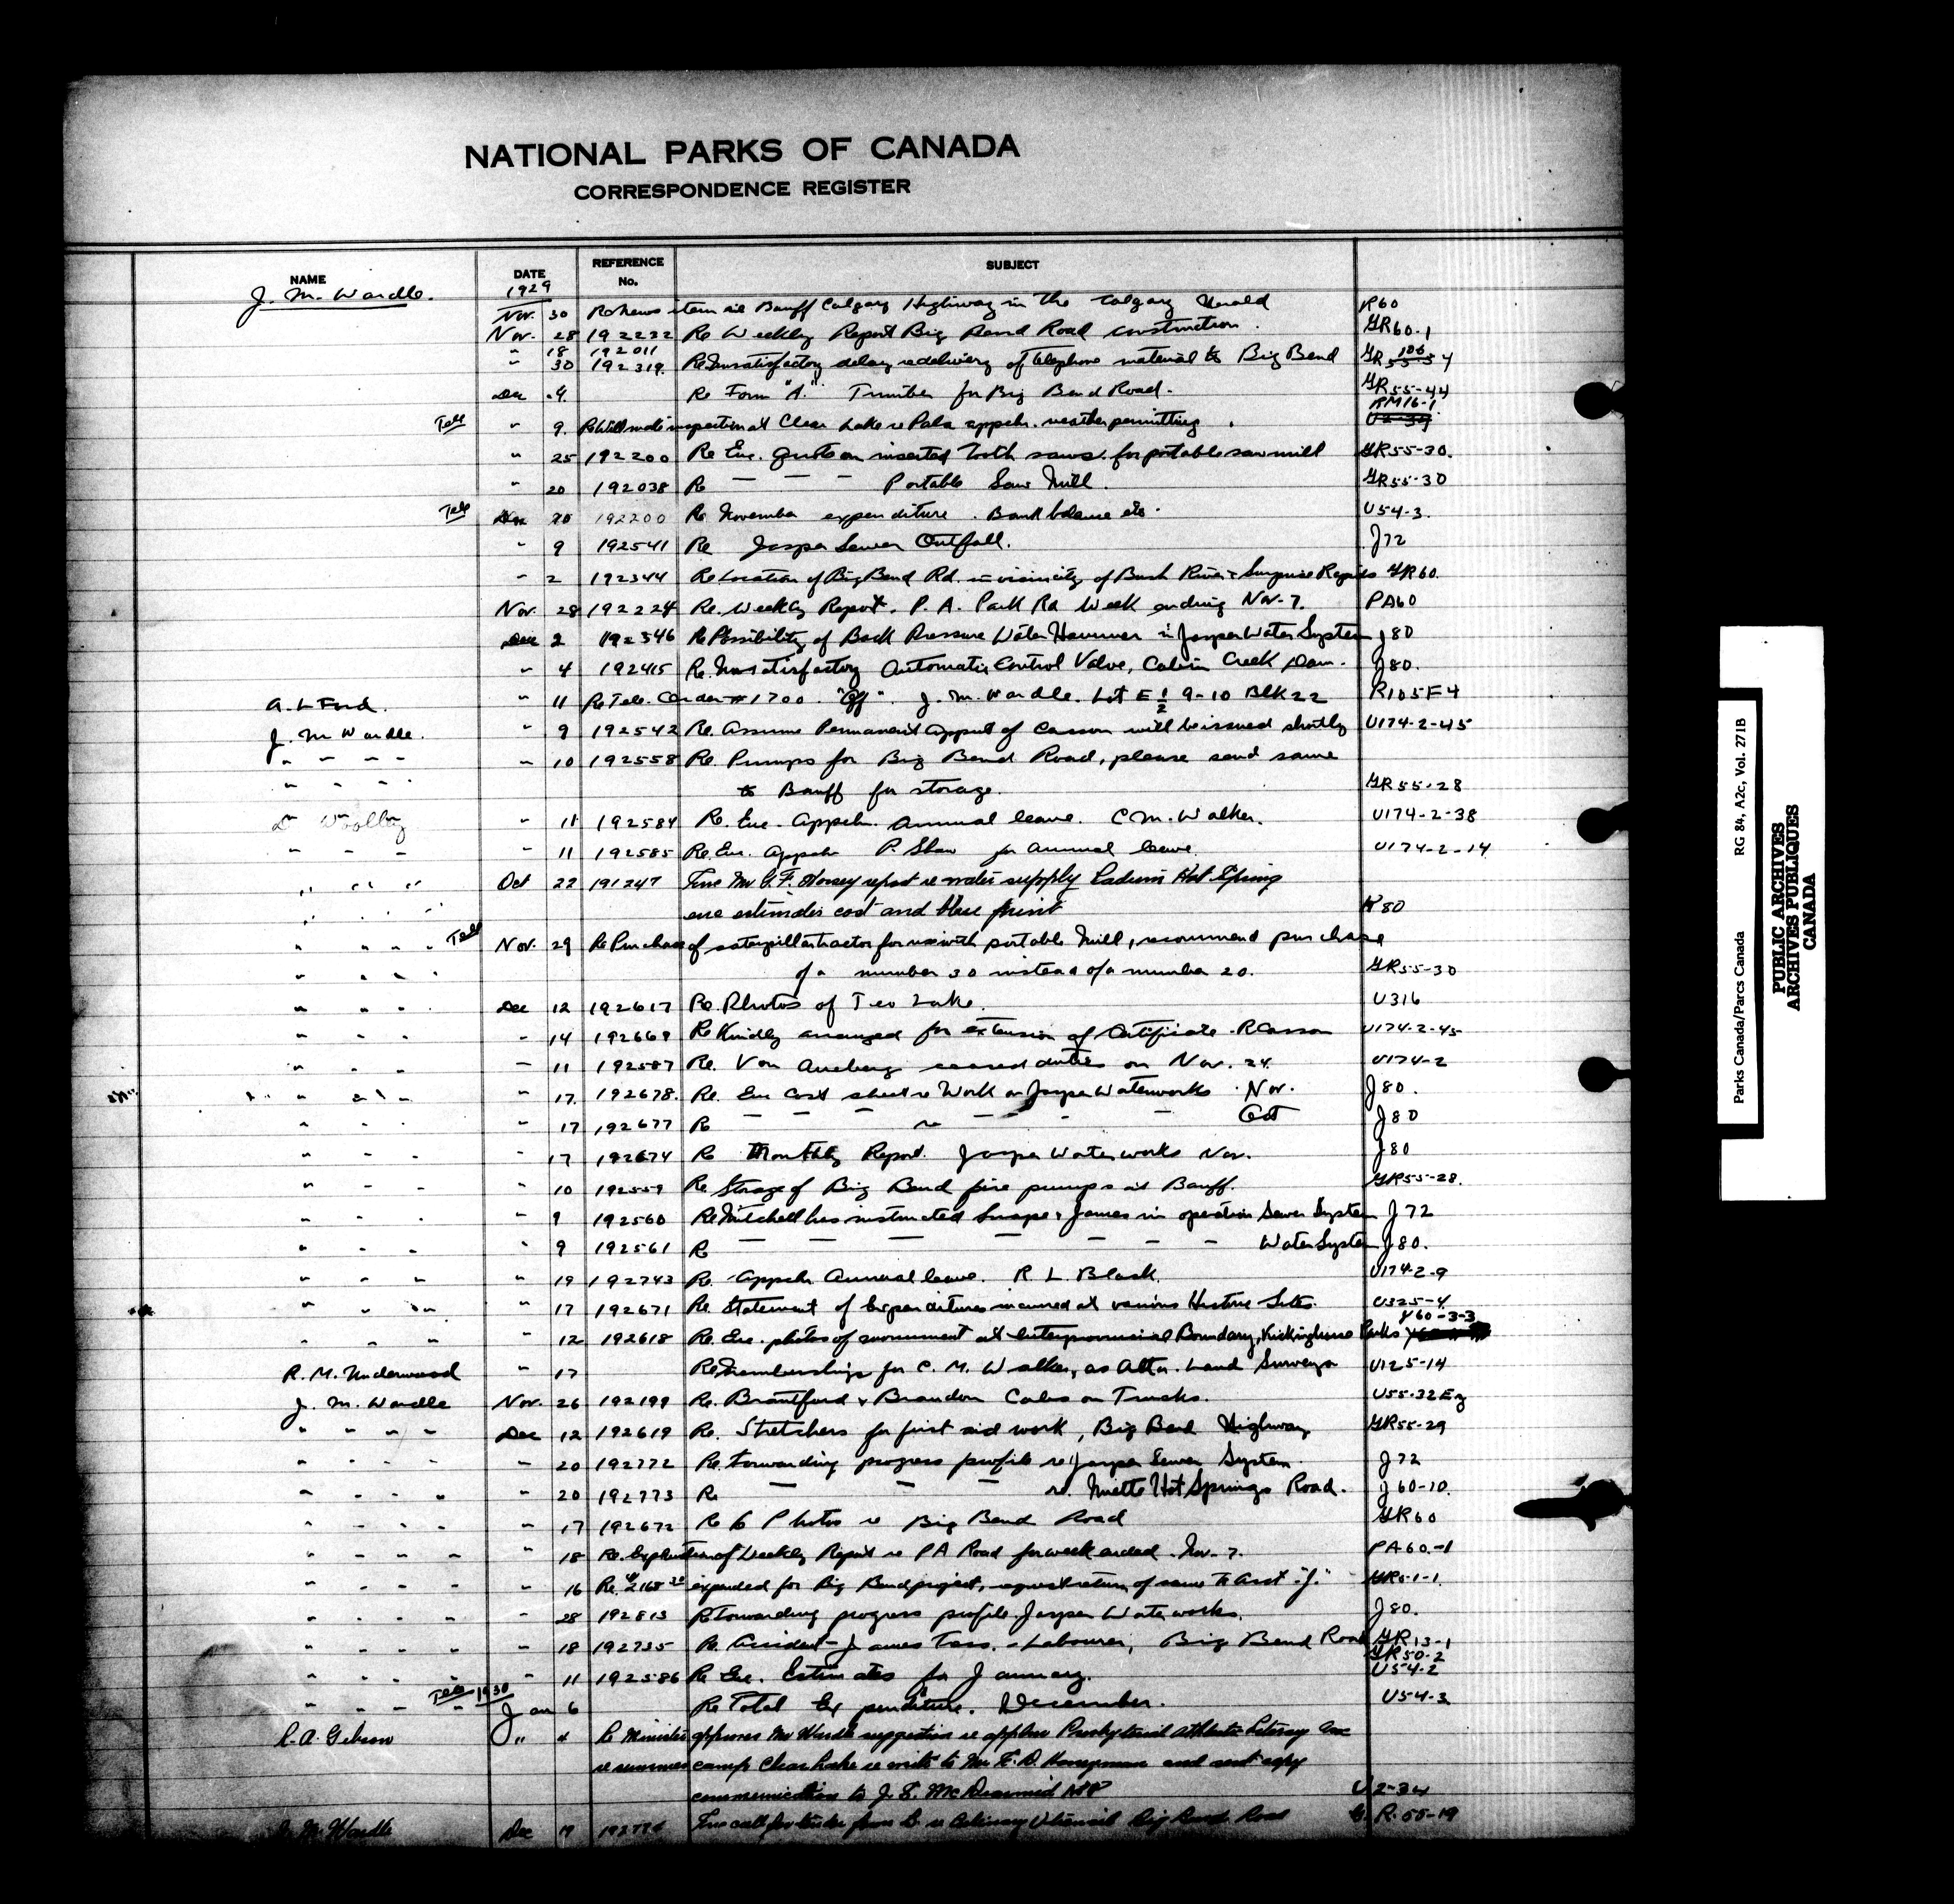 NATIONAL PARKS OF CANADA
CORRESPONDENCE REGISTER
NAME DATE REFERENCE No. SUBJECT
J. M. Wardle. 1929
Nov. 30 Re News item re Banff Calgary Highway in the Calgary Herald R60
Nov. 28 192232 Re Weekly Report Big Bend Road construction. GR60-1
" 18 192011
" 30 192319. Re Unsatisfactory delay re delivery of telephone material to Big Bend GR
Dec .9. Re Form "A." Timber for Big Bend Road. GR55-44
RM16-1
Tele " 9. Re Will make inspection at Clear Lake re appch. weather permitting. U2-34
" 25 192200 Re Enc. quote on inserted Tooth saws for portable saw mill GR55-30.
" 20 192038 Re — — — Portable Saw Mill. GR55-30
Tele 192200 Re November expenditure. Bank balance etc. U54-3.
" 9 192541 Re Jasper Sewer Outfall. J72
" 2 192344 Re Location of Big Bend Rd. in vicinity of Bush River & Surprise Rapids GR60.
Nov. 28 192224 Re. Weekly Report. P. A. Park Rd Week ending Nov. 7. PA60
Dec 2 192346 Re Possibility of Back Pressure Water Hammer in Jasper Water System J80
" 4 192415 Re. Unsatisfactory Automatic Control Valve, Cabin Creek Dam. J80.
A. L Ford. " 11 Re Tele. Order #1700. J. M. Wardle. Lot E ½ 9-10 Blk 22 R105F4
J. M Wardle. " 9 192542 Re. Assume Permanent appmt of Casson will be issued shortly U174-2-45
" " " " " 10 192558 Re. Pumps for Big Bend Road, please send same
" " " to Banff for storage. GR55-28
Woolley " 11 192584 Re. Enc. appch. Annual leave. C. M. Walker. U174-2-38
" " " " 11 192585 Re. Enc. appch P. Shaw for annual leave. U174-2-14
" " " Oct 22 191247 Enc Mr C. F. Horsey report re water supply Radium Hot Spring
" " " enc estimates cost and blue print K80
" " " " Tele Nov. 29 Re Purchase of caterpillar tractor for use with portable Mill, recommend purchase
" " " " of a number 30 instead of a number 20. GR55-30
" " " Dec 12 192617 Re. Photos of Lake. U316
" " " " 14 192669 Re Kindly arranged for extension of Certificate. R Casson U174-2-45
" " " " 11 192587 Re. Von duties on Nov. 24. U174-2
" " " " 17. 192678. Re. Enc Cost sheet re Work on Jasper Waterworks Nov. J80.
" " " " 17 192677 Re — — — " — — Oct J80
" " " " 17 192674 Re Monthly Report. Jasper Waterworks Nov. J80
" " " " 10 192559 Re Storage of Big Bend fire pumps at Banff. GR55-28.
" " " " 9 192560 Re Mitchell has instructed & James in operation Sewer System J72
" " " " 9 192561 Re — — — — — — — Water System J80.
" " " " 19 192743 Re. appch Annual leave. R L Black. U174-2-9
" " " " 17 192671 Re. Statement of Expenditures incurred at various Historic Sites. U325-4.
Y60-3-3
" " " " 12 192618 Re. Enc. photos of monument at Interprovincial Boundary, Kickinghorse Parks
R. M. Underwood " 17 Re Membership for C. M. Walker, as Alta. Land Surveyor U125-14
J. M. Wardle Nov. 26 192199 Re. Brantford & Brandon Cabs on Trucks. U55-32Eg
" " " " Dec 12 192619 Re. Stretchers for first aid work, Big Bend Highway GR55-29
" " " " " 20 192772 Re. Forwarding progress profile re Jasper Sewer System. J72
" " " " " 20 192773 Re — — — re. Miette Hot Springs Road. J60-10.
" " " " " 17 192672 Re 6 Photos re Big Bend Road GR60
" " " " " 18 Re. Explanation of Weekly Report re PA Road for week ended. Nov-7. PA60.-1
" " " " " 16 Re. expended for Big Bend project, request return of same to acct "J." GR51-1.
" " " " " 28 192813 Re Forwarding progress profile. Jasper Waterworks. J80.
" " " " " 18 192735 Re. Accident - James Tass. - Labourer, Big Bend Road GR13-1
GR50-2
" " " " " 11 192586 Re Enc. Estimates for January. U54-2
" " " " Tele 1930 Jan 6 Re Total Expenditure. December. U54-3
R. A. Gibson " 4 Re Minister approves Mr Wardle suggestion re appln Presbyterial Athletic Literary
re summer camp Clear Lake re write to Mr F. D. Honeyman and sent copy
communication to J. S. McDiarmid U2-34
J. M. Wardle Dec 19 Enc call for tender from re Culinary Utensils Big Bend Road G. R. 55-19
Parks Canada/Parcs Canada RG 84, A2c, Vol. 271B
PUBLIC ARCHIVES
ARCHIVES PUBLIQUES
CANADA